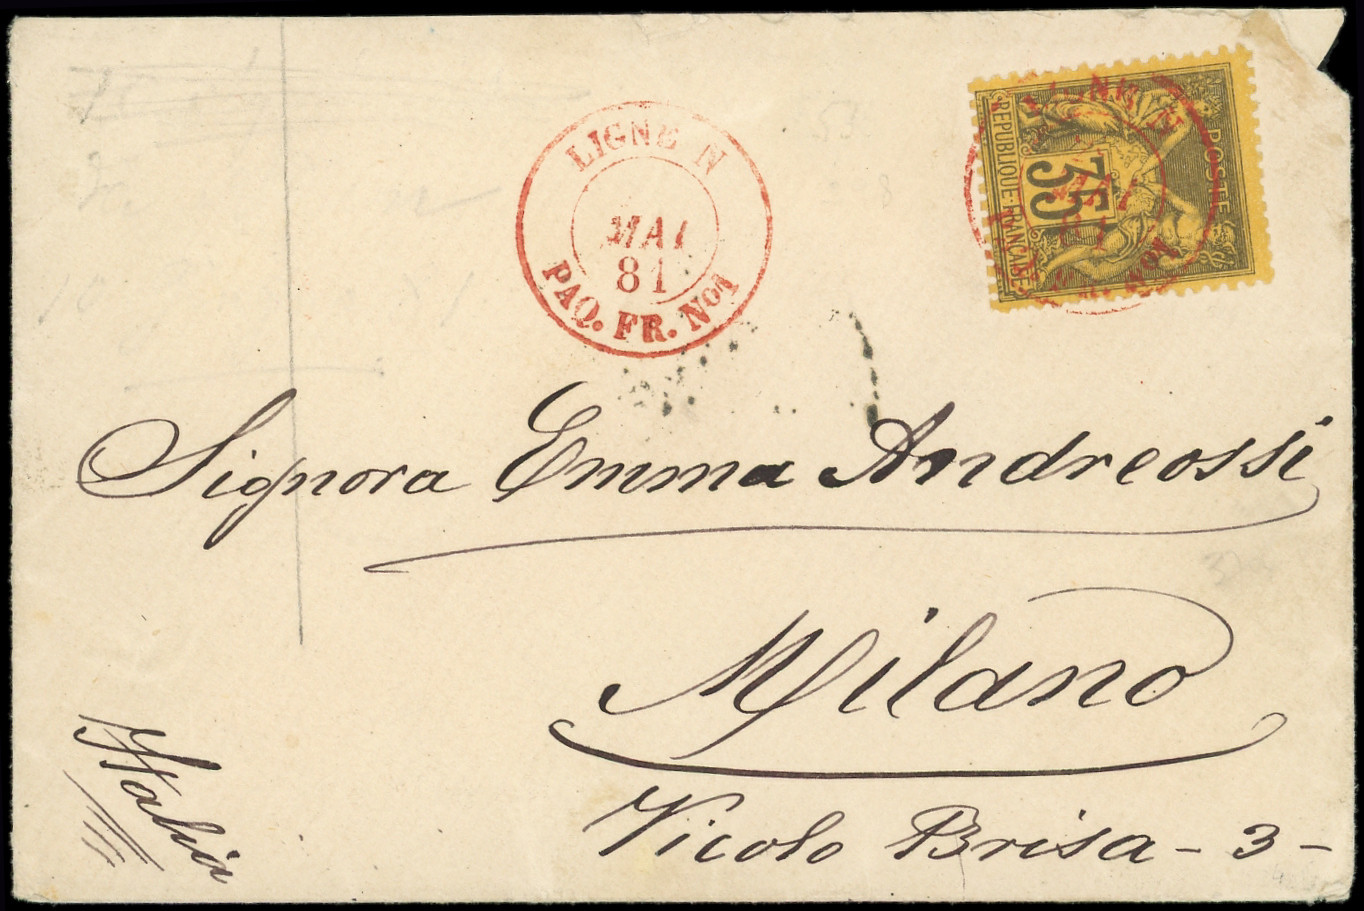 LIGNE N
MAI
81
PAQ. FR. No 1
POSTE
35
REPUBLIQUE FRANÇAISE
LIGNE N
Signora Emma Andreossi
Milano
Vicolo Brisa - 3 -
Italia